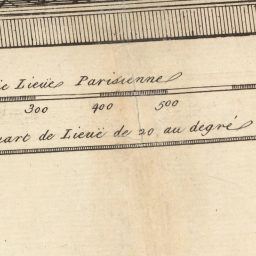 Lieuë Parisienne
300 400 500
uart de Lieuë de 20 au degré